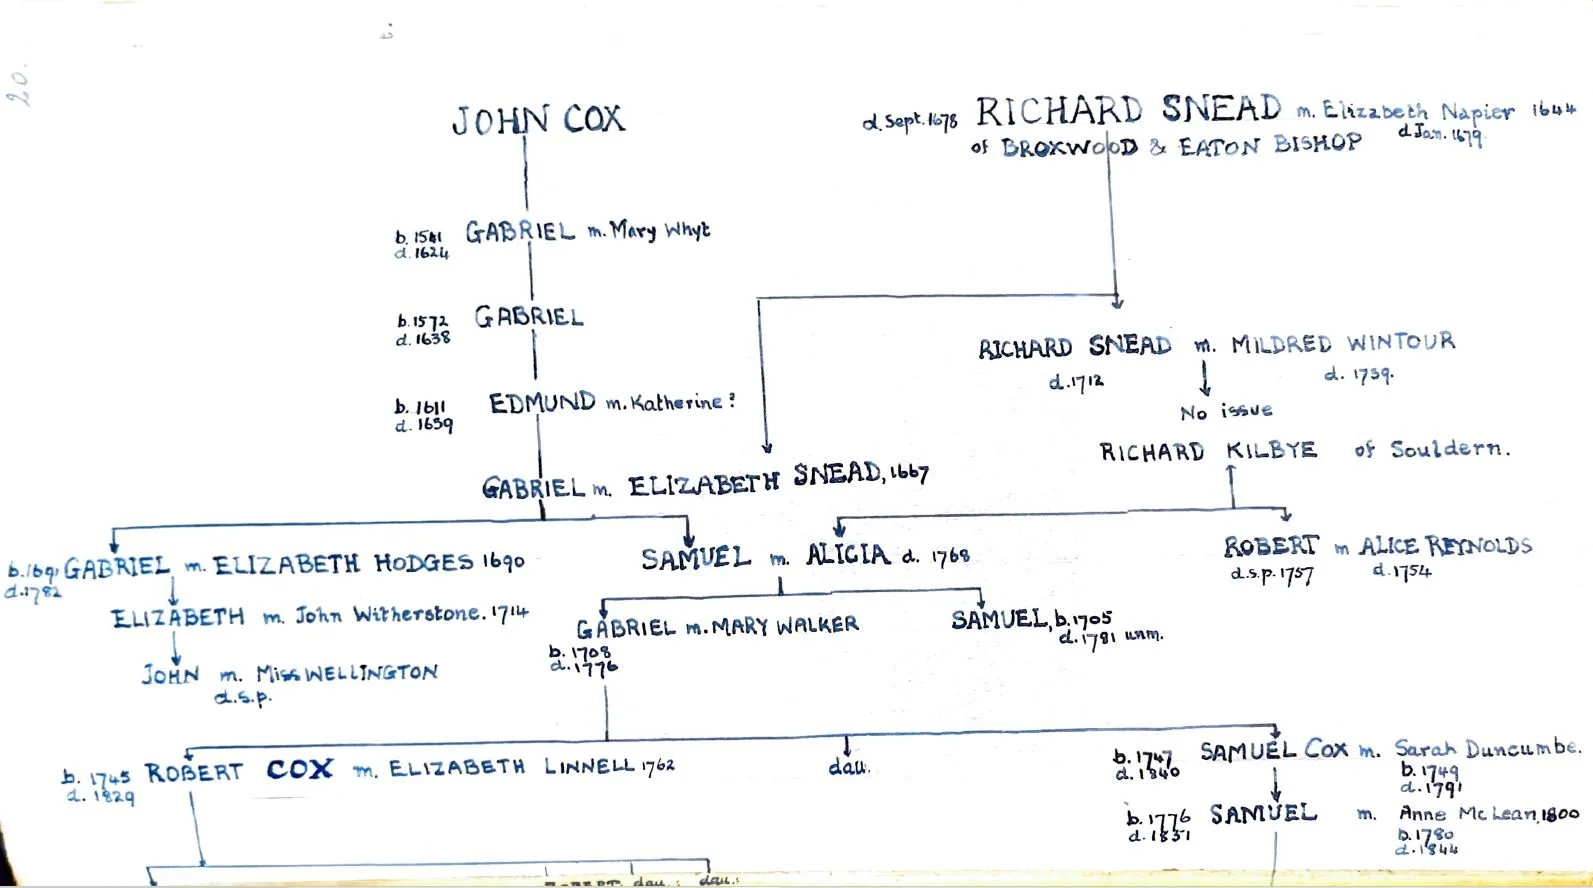 20.
JOHN COX
d. Sept. 1678 RICHARD SNEAD m. Elizabeth Napier 1644
d Jan. 1679.
of BROXWOOD & EATON BISHOP
b. 1541 GABRIEL m. Mary Whyt
d. 1624
b. 1572 GABRIEL
d. 1638
RICHARD SNEAD m. MILDRED WINTOUR
d. 1712 d. 1739.
No issue
b. 1611 EDMUND m. Katherine?
d. 1659
RICHARD KILBYE of Souldern.
GABRIEL m. ELIZABETH SNEAD, 1667
b. 1691 GABRIEL m. ELIZABETH HODGES 1690
d. 1782
SAMUEL m. ALICIA d. 1768
ROBERT m ALICE REYNOLDS
d.s.p. 1757 d. 1754
ELIZABETH m. John Witherstone. 1714
GABRIEL m. MARY WALKER
b. 1708
d. 1776
SAMUEL, b. 1705
d. 1781 unm.
JOHN m. Miss WELLINGTON
d.s.p.
b. 1745 ROBERT COX m. ELIZABETH LINNELL 1762
d. 1829
dau.
b. 1747 SAMUEL COX m. Sarah Duncumbe.
d. 1840 b. 1749
d. 1791
b. 1776 SAMUEL m. Anne McLean, 1800
d. 1851 b. 1780
d. 1844
ROBERT dau.: dau.: